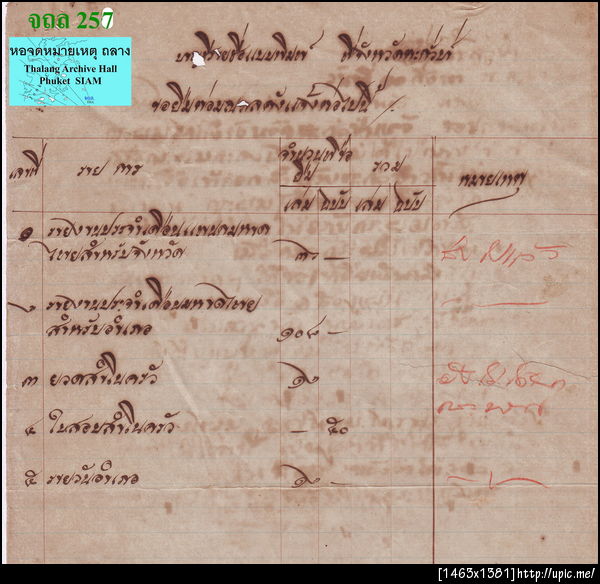 จถล 257
หอจดหมายเหตุ ถลาง
Thalang Archive Hall
Phuket SIAM
บาญชีรายชื่อแบบพิมพ์ ที่จังหวัดตะกั่วป่า
ขอยืมต่อมณฑลดังแจ้งต่อไปนี้
เลขที่ รายการ จำนวนที่ขอยืม รวม หมายเหตุ
เล่ม ฉบับ เล่ม ฉบับ
๑ รายงานประจำเดือนแพนกมหาด
ไทยสำหรับจังหวัด
๒ รายงานประจำเดือนมหาดไทย
สำหรับอำเภอ ๑๐๘ –
๓ ยอดสำมโนครัว ๑๐
๔ ใบสอบสำมโนครัว – ๕๐
๕ รายวันอำเภอ ๑๐ –
[1463x1381]http://upic.me/